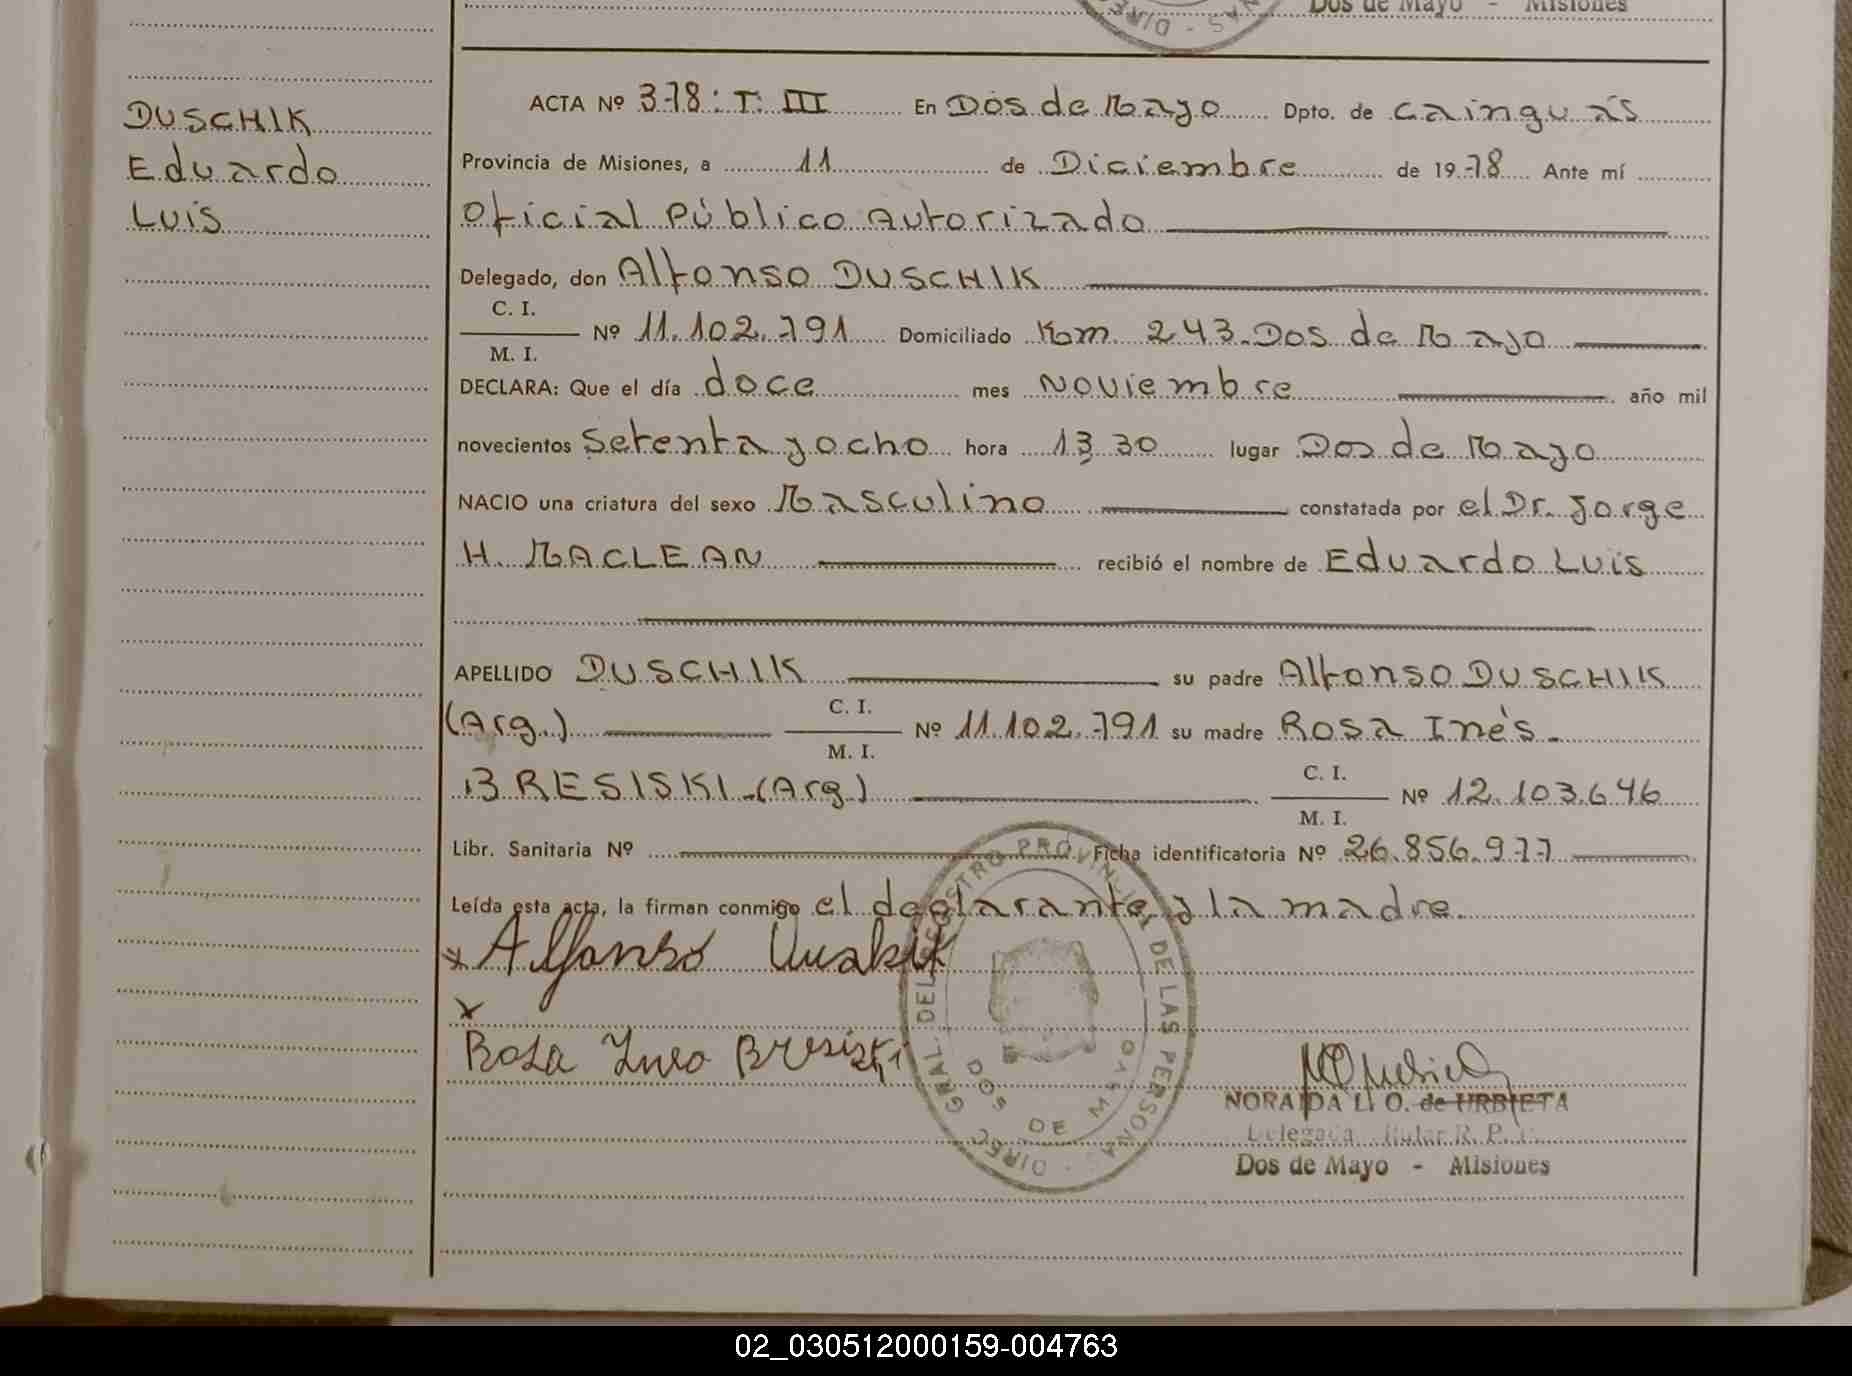 Dos de Mayo - Misiones
DUSCHIK
Eduardo
Luis
ACTA Nº 378: T: III En Dos de Mayo Dpto. de Cainguás
Provincia de Misiones, a 11 de Diciembre de 1978 Ante mí
Oficial Público Autorizado
Delegado, don Alfonso DUSCHIK
C. I.
Nº 11.102.791 Domiciliado Km. 243. Dos de Mayo
M. I.
DECLARA: Que el día doce mes Noviembre año mil
novecientos Setenta y ocho hora 13,30 lugar Dos de Mayo
NACIO una criatura del sexo Masculino constatada por el Dr. Jorge
H. MACLEAN recibió el nombre de Eduardo Luis
APELLIDO DUSCHIK su padre Alfonso DUSCHIK
C. I.
(Arg.) Nº 11.102.791 su madre Rosa Inés.
M. I.
C. I.
BRESISKI.-(Arg.) Nº 12.103.646
M. I.
Libr. Sanitaria Nº Ficha identificatoria Nº 26.856.977
Leída esta acta, la firman conmigo el declarante y la madre.
x Alfonso
x
Rosa Bresiski
DIREC. GRAL. DEL REGISTRO PROVINCIAL DE LAS PERSONAS
DOS DE MAYO
NORAIDA L. O. de URBIETA
Delegada Titular R. P. P.
Dos de Mayo - Misiones
02_030512000159-004763